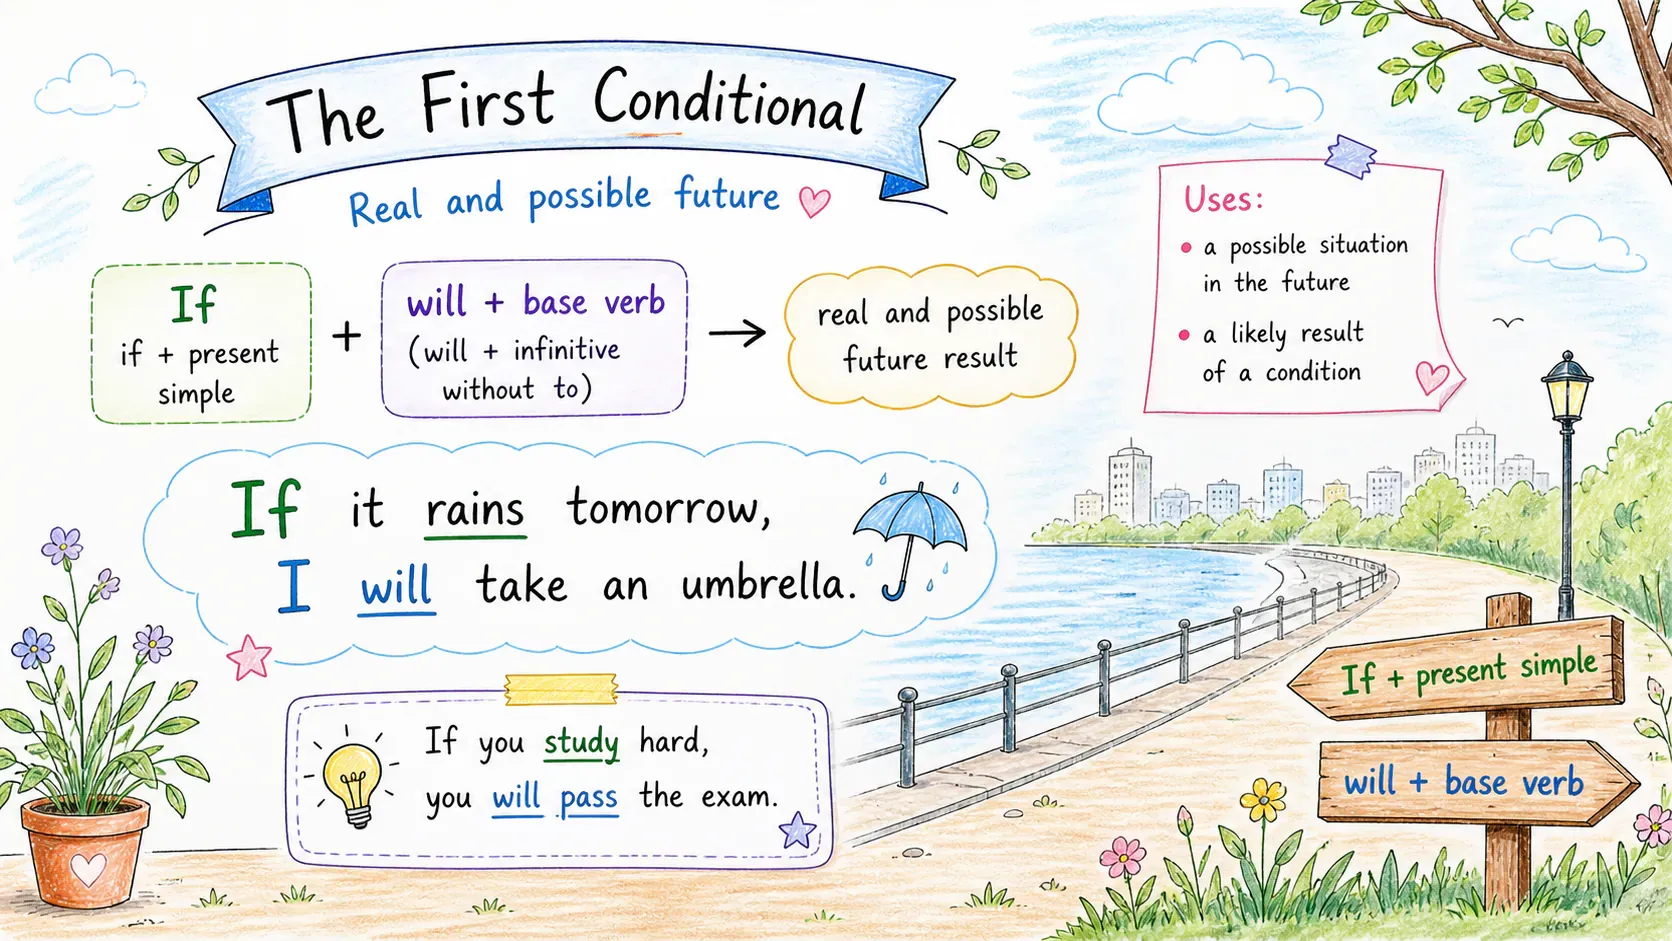 The First Conditional
Real and possible future
If
if + present
simple
+
will + base verb
(will + infinitive
without to)
real and possible
future result
Uses:
a possible situation
in the future
a likely result
of a condition
If it rains tomorrow,
I will take an umbrella.
If you study hard,
you will pass the exam.
If + present simple
will + base verb